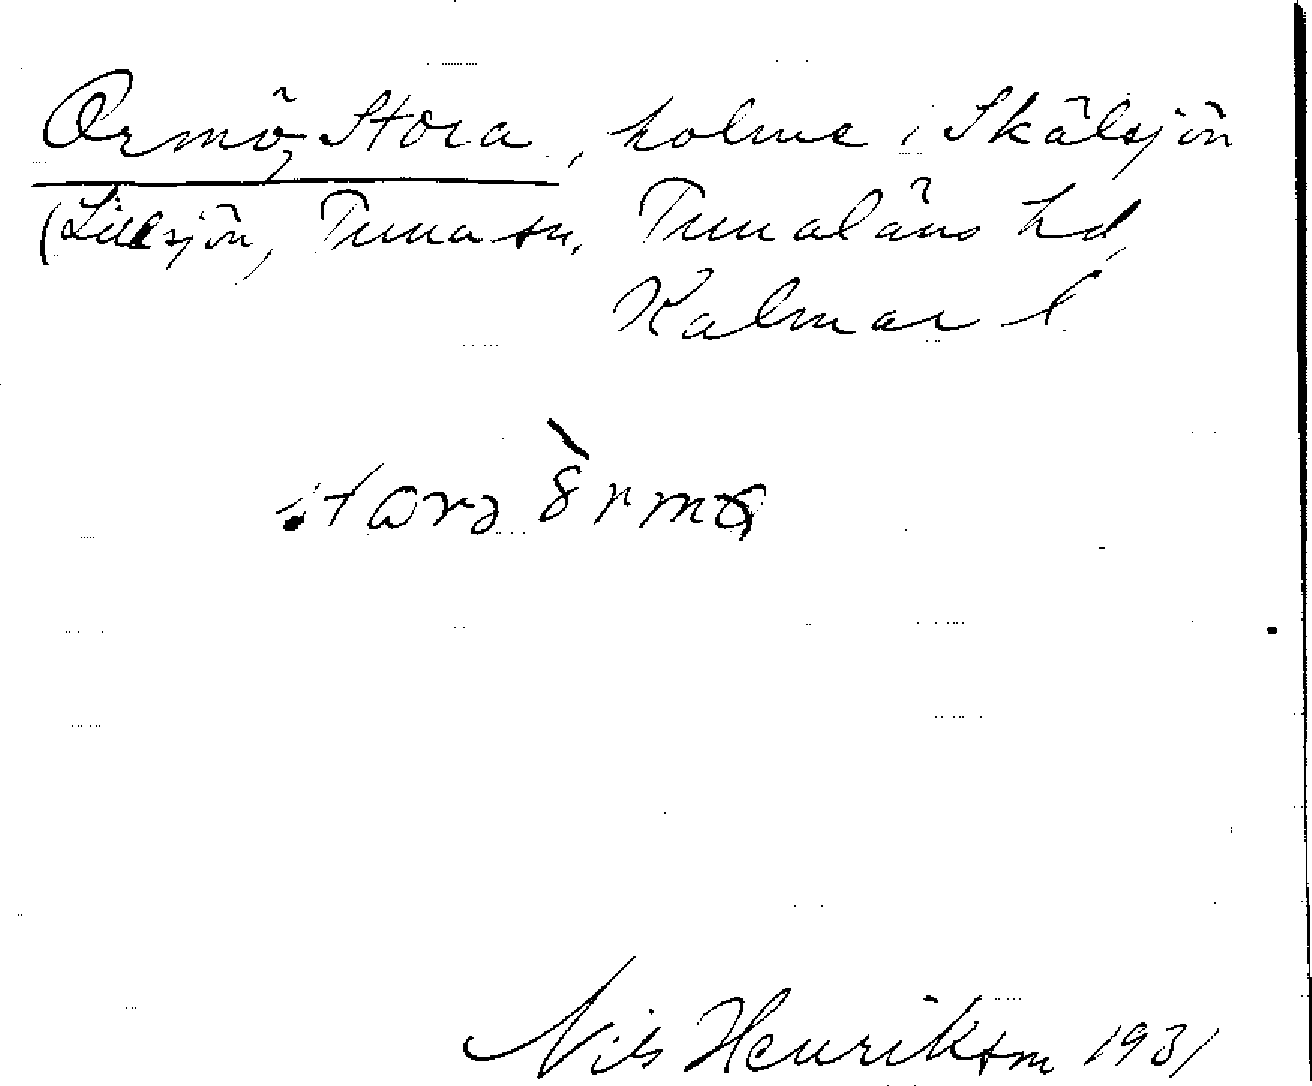 Ormö, Stora, holme i Skälsjön
(Lillsjön, Tuna sn, Tunaläns hd,
Kalmar l.
Nils Henrikson 1931